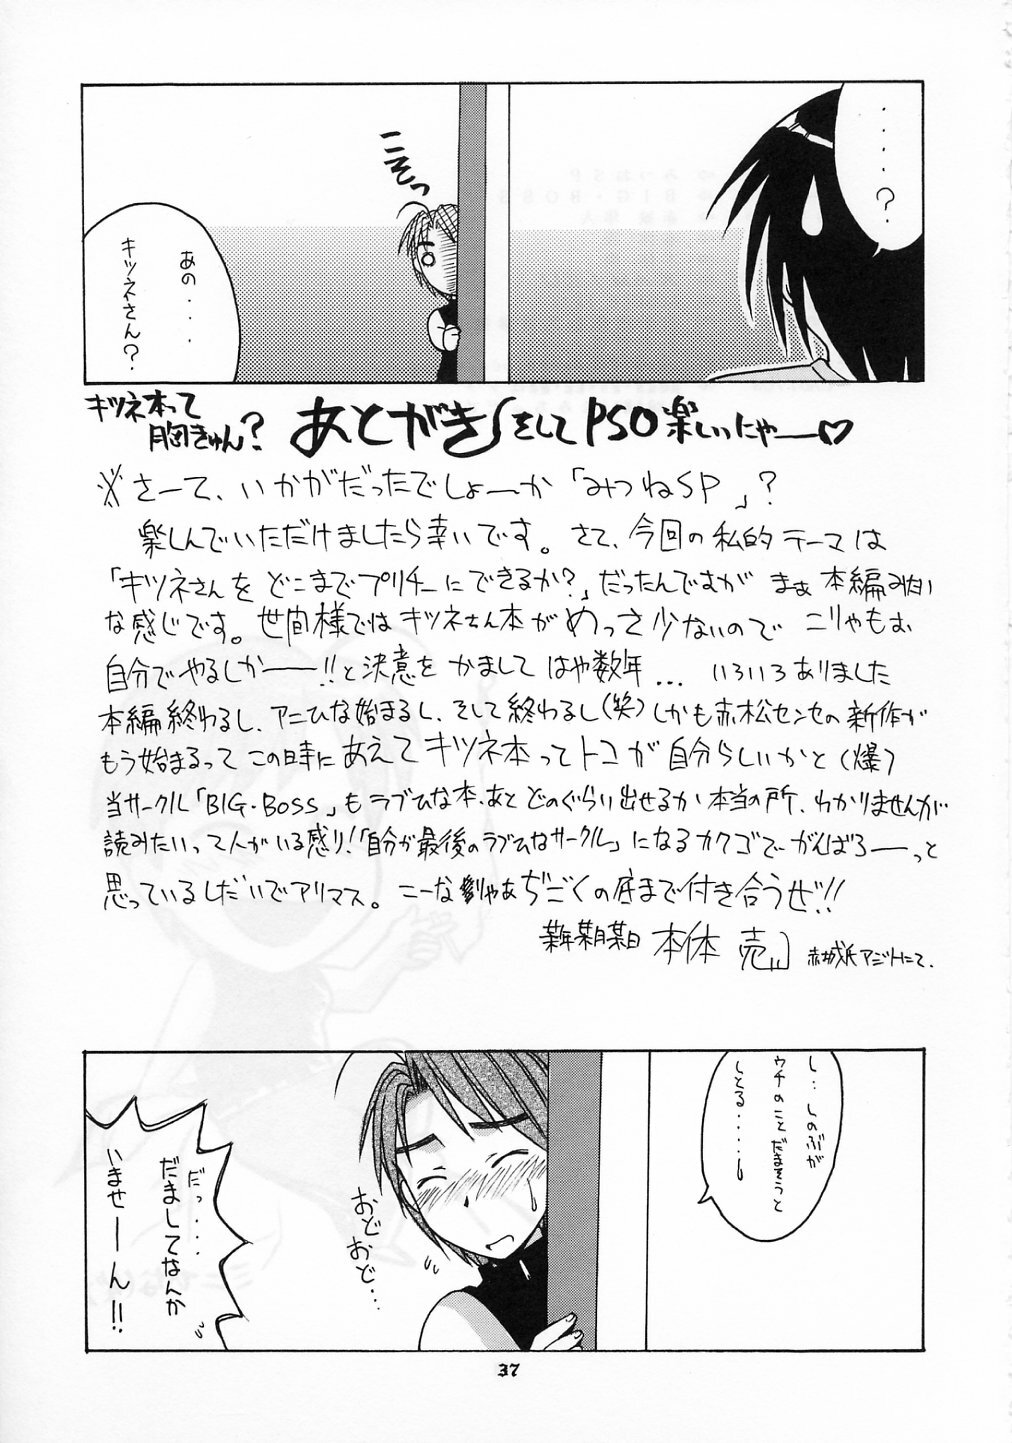 ・・・・・？
こそっ
あの・・・・
キツネさん？
キツネ本って
胸きゅん？
あとがき
そしてPSO楽しいにゃー♡
※さーて、いかがだったでしょーか「みつねSP」？
楽しんでいただけましたら幸いです。さて、今回の私的テーマは
「キツネさんをどこまでプリチーにできるか？」だったんですが まぁ 本編みたい
な感じです。世間様ではキツネさん本がめっさ少ないので こりゃもぉ
自分でやるしかーー!!と決意をかましてはや数年... いろいろありました
本編終わるし、アニひな始まるし、そして終わるし(笑)しかも赤松センセの新作が
もう始まるって この時にあえてキツネ本ってトコが自分らしいかと(爆)
当サークル「BIG・BOSS」もラブひな本、あとどのぐらい出せるか本当の所、わかりませんが
読みたいって人がいる限り!「自分が最後のラブひなサークル」になるカクゴでーがんばろーーっと
思っているしだいでアリマス。こーなりゃあぢごくの底まで付き合うぜ!!
某年某月某日 本体 売
赤城氏アジトにて.
し・・しのぶが
ウチのことだまそうと
しとる・・・・・
おど
おど・・・
だっ・・・・
だましてなんか
いませーーん!!
37